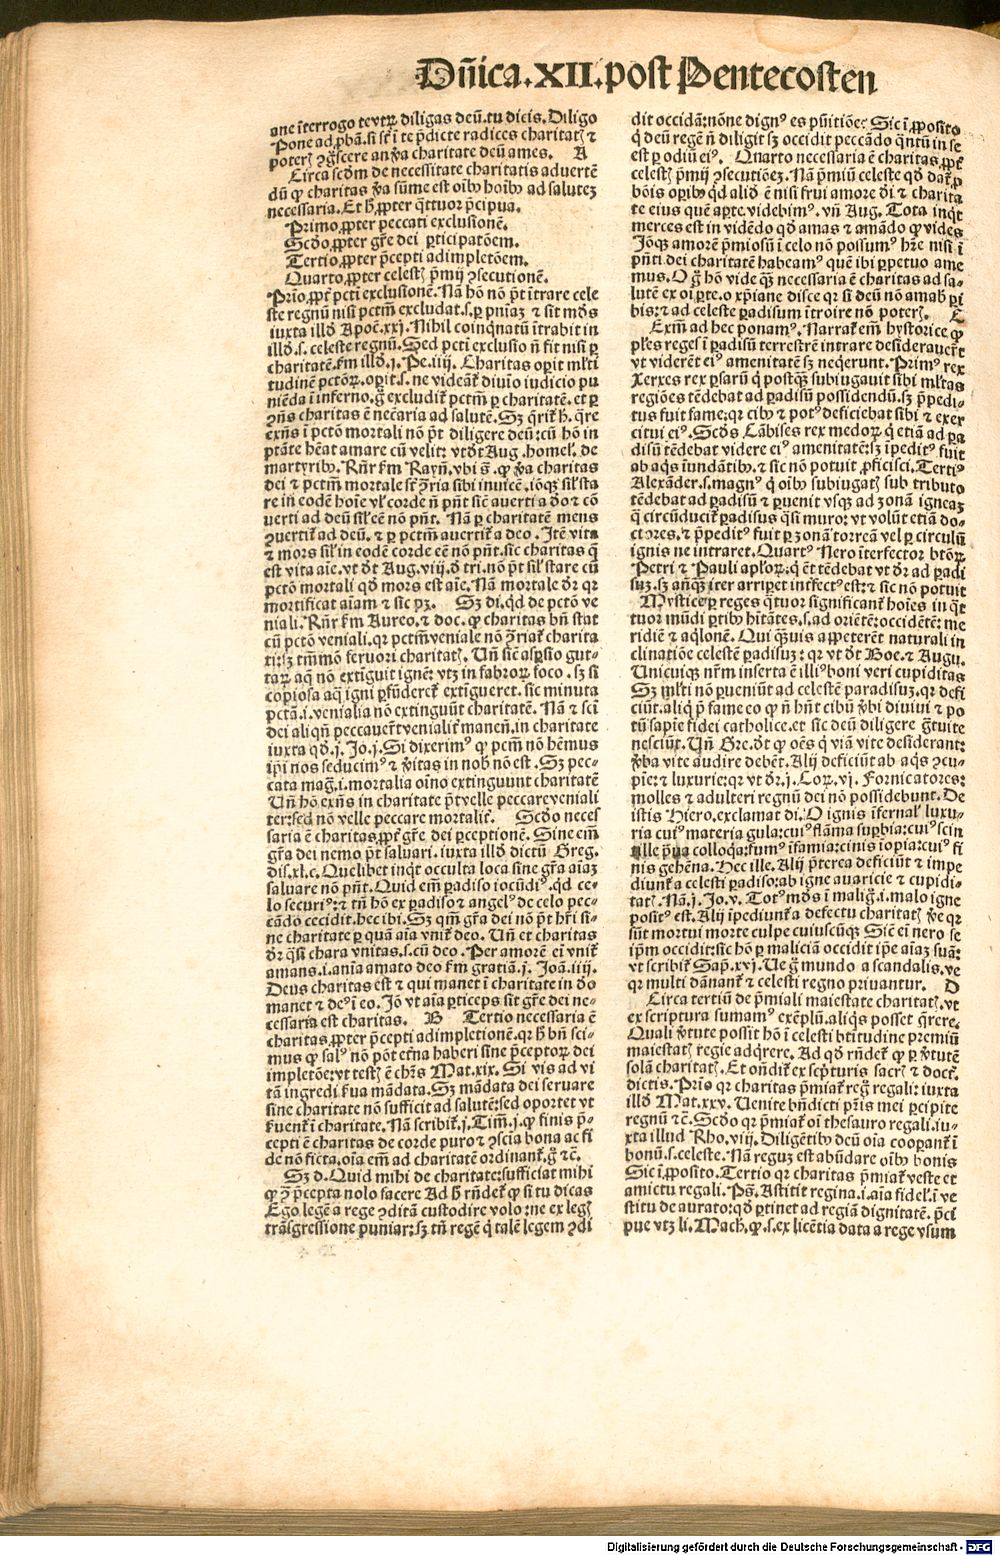 Dñica.XII.post Pentecosten
ane ĩterrogo te vtrꝝ diligas deũ.tu dicis. Diligo
Pone ad ꝓbã.si sĩt ĩ te p̃dicte radices charitatꝭ ⁊
poterꝭ ꝯgscere an ṽa charitate deũ ames. A
Circa scd̃m de necessitate charitatis aduertẽ
dũ ꝙ charitas ṽa sũme est oĩbꝰ hoĩbꝰ ad salutez
necessaria. Et h̃ ꝓpter q̃ttuor p̃cipua.
Primo ꝓpter peccati exclusionẽ.
Scd̃o ꝓpter gr̃e dei ꝑticipatõem.
Tertio ꝓpter p̃cepti adimpletõem.
Quarto ꝓpter celestꝭ p̃mij ꝯsecutionẽ.
Prĩo ꝓpt̃ pcti exclusionẽ. Nã hõ nõ p̃t ĩtrare cele
ste regnũ nisi pctm̃ excludat.s.ꝑ pniaz ⁊ sit mũds
iuxta illd̃ Apoc̃.xxj. Nihil coinq̃natũ ĩtrabit in
illd̃.s. celeste regnũ. Sed pcti exclusio ñ fit nisi ꝑ
charitatẽ.fm illd̃.j. Pe.iiij. Charitas oꝑit ml̃ti
tudinẽ pctõꝝ.oꝑit.s. ne videãt᷑ diuĩo iudicio pu
niẽda ĩ inferno.g̃ excludit᷑ pctm̃ ꝑ charitatẽ.et ꝑ
ꝯñs charitas ẽ necc̃aria ad salutẽ. Sꝫ q̃rit᷑ h̃. q̃re
exñs ĩ pctõ mortali nõ p̃t diligere deũ:cũ hõ in
ptãte hẽat amare cũ velit: vt dt̃ Aug .homel᷑. de
martyribꝰ. Rñr fm Rayñ.vbi s̃. ꝙ ṽa charitas
dei ⁊ pctm̃ mortale sĩt ꝯ̃ria sibi inuicẽ.iõqꝫ sil᷑ sta
re in eodẽ hoĩe vl᷑ corde ñ pñt sic̃ auerti a do ⁊ cõ
uerti ad deũ sil᷑ cẽ nõ pñt. Nã ꝑ charitatẽ mens
ꝯuertit᷑ ad deũ.⁊ ꝑ pctm̃ auertit᷑ a deo . Itẽ vita
⁊ mors sil᷑ in eodẽ corde cẽ nõ pñt.sic̃ charitas q̃
est vita aĩe.vt dt̃ Aug.viij.d̃ tri.nõ p̃t sil᷑ stare cũ
pctõ mortali qd̃ mors est aĩe. Nã mortale dr̃ qꝛ
mortificat aĩam ⁊ sic pꝫ. Sꝫ di.qd̃ de pctõ ve
niali. Rñr fm Aureo.⁊ doc.ꝙ charitas bñ stat
cũ pctõ veniali.qꝛ pctm̃ veniale nõ ꝯ̃riat᷑ charita
ti:sꝫ tm̃mõ feruori charitatꝭ. Uñ sic̃ aspsio gut-
taꝝ aq̃ nõ extĩguit ignẽ: vtꝫ in fabroꝝ foco . sꝫ si
copiosa aq̃ igni ꝑfũderet᷑ extĩgueret. sic minuta
pctã.i.venialia nõ extinguũt charitatẽ. Nã ⁊ scĩ
dei aliqñ peccauer̃t venialit᷑ manen̄.in charitate
iuxta qd̃.j. Jo.j. Si dixerimꝰ ꝙ pcm̃ nõ hẽmus
ip̃i nos seducimꝰ ⁊ ṽitas in nob̃ nõ est . Sꝫ pec-
cata mag̃.i.mortalia oĩno extinguunt charitatẽ
Uñ hõ exñs in charitate p̃t velle peccare veniali
ter:sed nõ velle peccare mortalit᷑. Scd̃o neces
saria ẽ charitas ꝓpt᷑ gr̃e dei ꝑceptionẽ. Sine em̃
gr̃a dei nemo p̃t saluari. iuxta illd̃ dictũ Greg.
dis.xl.c. Quelibet inqt̃ occulta loca sine gr̃a aĩaꝫ
saluare nõ pñt. Quid em̃ paradiso iocũdiꝰ.qd̃ ce-
lo securiꝰ:⁊ tñ hõ ex padiso ⁊ angelꝰ de celo pec-
cãdo cecidit.hec ibi. Sꝫ qm̃ gr̃a dei nõ p̃t hr̃i si-
ne charitate ꝑ quã aĩa vnit᷑ deo. Uñ et charitas
dr̃ q̃si chara vnitas.s.cũ deo . Per amorẽ ei vnit᷑
amans.i.anĩa amato deo fm gratiã.j. Joã.iiij.
Deus charitas est ⁊ qui manet ĩ charitate in do
manet ⁊ deꝰ ĩ eo. Jõ vt aĩa ꝑticeps sit gr̃e dei ne-
cessaria est charitas. B Tertio necessaria ẽ
charitas ꝓpter p̃cepti adimpletionẽ.qꝛ h̃ bñ sci-
mus ꝙ salꝰ nõ põt etñа haberi sine p̃ceptoꝝ dei
impletõe:vt testꝭ ẽ chr̃s Mat.xix. Si vis ad vi
tã ingredi ẜua mãdata. Sꝫ mãdata dei seruare
sine charitate nõ sufficit ad salutẽ:sed oportet vt
ẜuent᷑ ĩ charitate. Nã scribit᷑.j. Tim̃.j.ꝙ finis p̃-
cepti ẽ charitas de corde puro ⁊ ꝯscĩa bona ac fi
de nõ ficta.oĩa em̃ ad charitatẽ ordinant᷑.g̃ ⁊c̃.
Sꝫ d. Quid mihi de charitate:sufficiat mihi
ꝙ ꝯ p̃cepta nolo facere Ad h̃ rñdet᷑ ꝙ si tu dicas
Ego legẽ a rege ꝯditã custodire volo :ne ex legꝭ
trãsgressione puniar:sꝫ tñ regẽ q̃ talẽ legem ꝯdi
dit occidã:nõne dignꝰ es pũitiõe: Sic ĩ ꝓposito
q̃ deũ regẽ ñ diligit sꝫ occidit peccãdo qñtũ in se
est ꝑ odiũ eiꝰ. Quarto necessaria ẽ charitas ꝓpt᷑
celestꝭ p̃mij ꝯsecutiõeꝫ. Nã p̃miũ celeste qd̃ dat᷑ ꝓ
bõis oꝑibꝰ qd̃ aliud ẽ nisi frui amore di ⁊ charita
te eius quẽ aꝑte.videbimꝰ. vñ Aug. Tota inqt̃
merces est in vidẽdo qd̃ amas ⁊ amãdo ꝙ vides
Jõqꝫ amorẽ p̃miosũ ĩ celo nõ possumꝰ hr̃e nisi ĩ
pñti dei charitatẽ habeamꝰ quẽ ibi ꝑpetuo ame
mus. O g̃ hõ vide qꝫ necessaria ẽ charitas ad sa-
lutẽ ex oi ꝑte.o xp̃iane disce qꝛ si deũ nõ amab̃ pi
bis:⁊ ad celeste padisum ĩtroire nõ poterꝭ. C
Exm̃ ad hec ponamꝰ. Narrat᷑ em̃ hystorice ꝙ
pl̃es reges ĩ padisũ terrestrẽ intrare desiderauer̃t
vt viderẽt eiꝰ amenitatẽ sꝫ neq̃erunt. Primꝰ rex
Xerxes rex psarũ q̃ postqꝫ subiugauit sibi ml̃tas
regiões tẽdebat ad padisũ possidendũ.sꝫ p̃pedi-
tus fuit fame:qꝛ cibꝰ ⁊ potꝰ deficiebãt sibi ⁊ exer
citui eiꝰ. Scd̃s Cãbises rex medoꝝ q̃ etiã ad pa
disũ tẽdebat videre eiꝰ amenitatẽ:sꝫ ĩpeditꝰ fuit
ab aqs ĩundãtibꝰ.⁊ sic nõ potuit ꝓficisci. Tertiꝰ
Alexãder.s.magnꝰ q̃ oĩbꝰ subiugatꝭ sub tributo
tẽdebat ad padisũ ⁊ ꝑuenit vsqꝫ ad zonã igneaꝫ
q̃ circũducit᷑ padisus q̃si muro: vt volũt etiã do-
ctores.⁊ p̃peditꝰ fuit ꝑ zonã torreã vel ꝑ circulũ
ignis ne intraret. Quartꝰ Nero ĩterfector btõꝝ
Petri ⁊ Pauli apl̃oꝝ:q̃ et̃ tẽdebat vt dr̃ ad padi
suꝫ.sꝫ añqꝫ iter arriꝑet int̃fectꝰ est:⁊ sic nõ potuit
Mystice ꝑ reges q̃tuor significant᷑ hoĩes in q̃t
tuor mũdi ꝑtibꝰ hĩtãtes.s.ad oriẽtẽ:occidẽtẽ: me
ridiẽ ⁊ aq̃lonẽ. Qui q̃uis appeterẽt naturali in
clinatiõe celestẽ padisuꝫ: qꝛ vt dt̃ Boe.⁊ Augꝰ.
Unicuiqꝫ nr̃m inserta ẽ illiꝰ boni veri cupiditas
Sꝫ ml̃ti nõ ꝑueniũt ad celestẽ paradisuꝫ.qꝛ defi
ciũt.aliq̃ p̃ fame eo ꝙ ñ hñt cibũ ṽbi diuini ⁊ po
tũ sapĩe fidei catholice.et sic deũ diligere g̃tuite
nesciũt. Uñ Gre.dt̃ ꝙ oẽs q̃ viã vite desiderant:
ṽba vite audire debẽt. Alij deficiũt ab aqs ꝯcu-
pĩe: ⁊ luxurie:qꝛ vt dr̃.j. Coꝝ.vj. Fornicatores:
molles ⁊ adulteri regnũ dei nõ possidebunt. De
istis Hiero.exclamat di. O ignis ĩfernal᷑ luxu-
ria cuiꝰ materia gula:cuiꝰ flãma supbia:cuiꝰ scin
tille p̃ua colloq̃a:fumꝰ ĩfamia:cinis ĩopia:cuiꝰ fi
nis gehẽna. Hec ille. Alij p̃terea deficiũt ⁊ impe
diunt᷑ a celesti padiso:ab igne auaricie ⁊ cupidi-
tatꝭ. Nã.j. Jo.v. Totꝰ mũds ĩ malig̃.i.malo igne
positꝰ est. Alij ĩpediunt᷑ a defectu charitatꝭ ṽe qꝛ
sũt mortui morte culpe cuiuscũqꝫ Sic̃ ei nero se
ip̃m occidit:sic hõ ꝑ maliciã occidit ip̃e aĩaꝫ suã:
vt scribit᷑ Sap̃.xvj. Ue g̃ mundo a scandalis.ve
qꝛ multi dãnant᷑ ⁊ celesti regno priuantur. D
Circa tertiũ de p̃miali maiestate charitatꝭ.vt
ex scriptura sumamꝰ exẽplũ.aliq̃s posset q̃rere.
Quali ṽtute possit hõ ĩ celesti btitudine premiũ
maiestatꝭ regie adq̃rere. Ad qd̃ rñdet᷑ ꝙ ꝑ ṽtutẽ
solã charitatꝭ. Et oñdit᷑ ex sc̃pturis sacrꝭ ⁊ doct̃.
dictis. Prĩo qꝛ charitas p̃miat᷑ reg̃ regali: iuxta
illd̃ Mat.xxv. Uenite bñdicti pr̃is mei ꝑcipite
regnũ ⁊c̃. Scd̃o qꝛ p̃miat᷑ oĩ thesauro regali.iu-
xta illud Rho.viij. Diligẽtibꝰ deũ oĩa coopant᷑ ĩ
bonũ.s.celeste. Nã reguꝫ est abũdare oĩbꝰ bonis
Sic ĩ ꝓposito. Tertio qꝛ charitas p̃miat᷑ veste et
amictu regali. Ps̃. Astitit regina.i.aĩa fidel᷑.ĩ ve
stitu de aurato:qd̃ ꝑtinet ad regiã dignitatẽ. p̃ci
pue vtꝫ li. Mach.ꝙ.s.ex licẽtia data a rege vsum
Digitalisierung gefördert durch die Deutsche Forschungsgemeinschaft - DFG